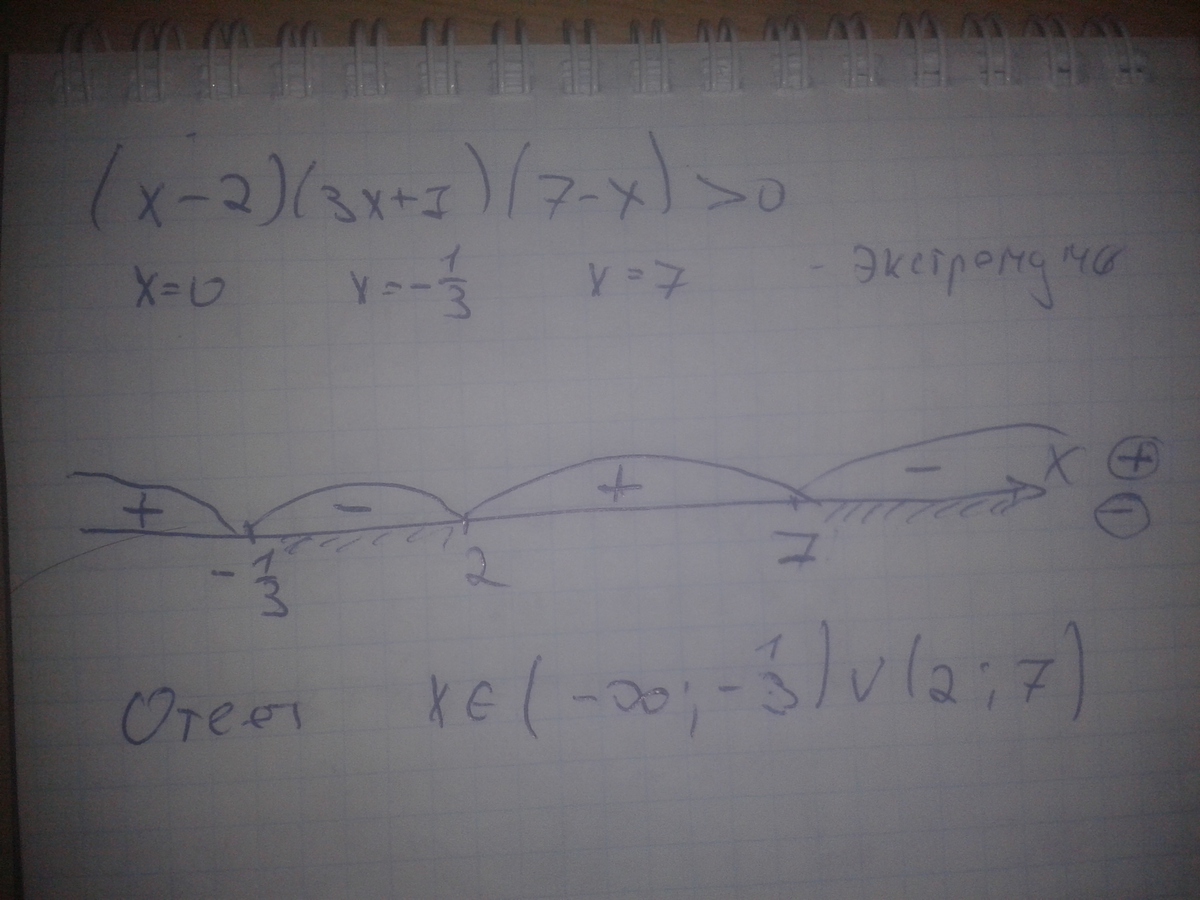 (x-2)(3x+1)(7-x)>0
x=0 x=-1/3 x=7 - экстремумы
+ - + - x +
-
-1/3 2 7
Ответ x∈(-∞;-1/3)∪(2;7)